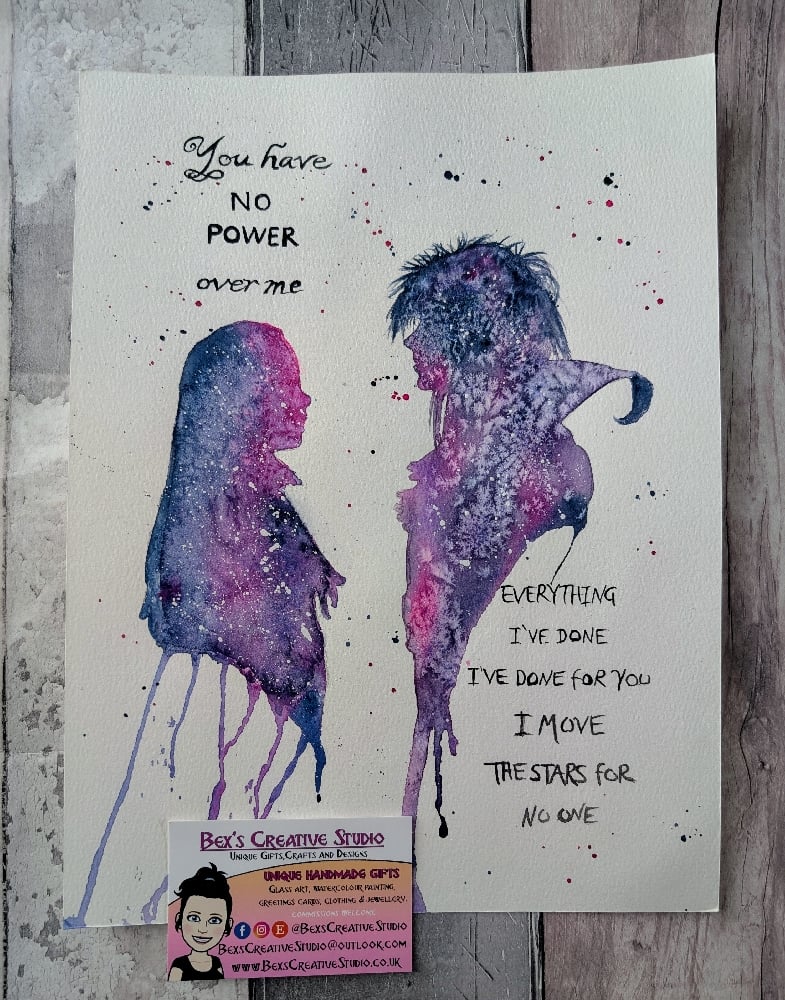 You have
NO
POWER
over me
EVERYTHING
I'VE DONE
I'VE DONE FOR YOU
I MOVE
THE STARS FOR
NO ONE
BEX'S CREATIVE STUDIO
UNIQUE GIFTS, CRAFTS AND DESIGNS
UNIQUE HANDMADE GIFTS
GLASS ART, WATERCOLOUR PAINTING,
GREETINGS CARDS, CLOTHING & JEWELLERY.
COMMISSIONS WELCOME
@BEXSCREATIVESTUDIO
BEXSCREATIVESTUDIO@OUTLOOK.COM
WWW.BEXSCREATIVESTUDIO.CO.UK